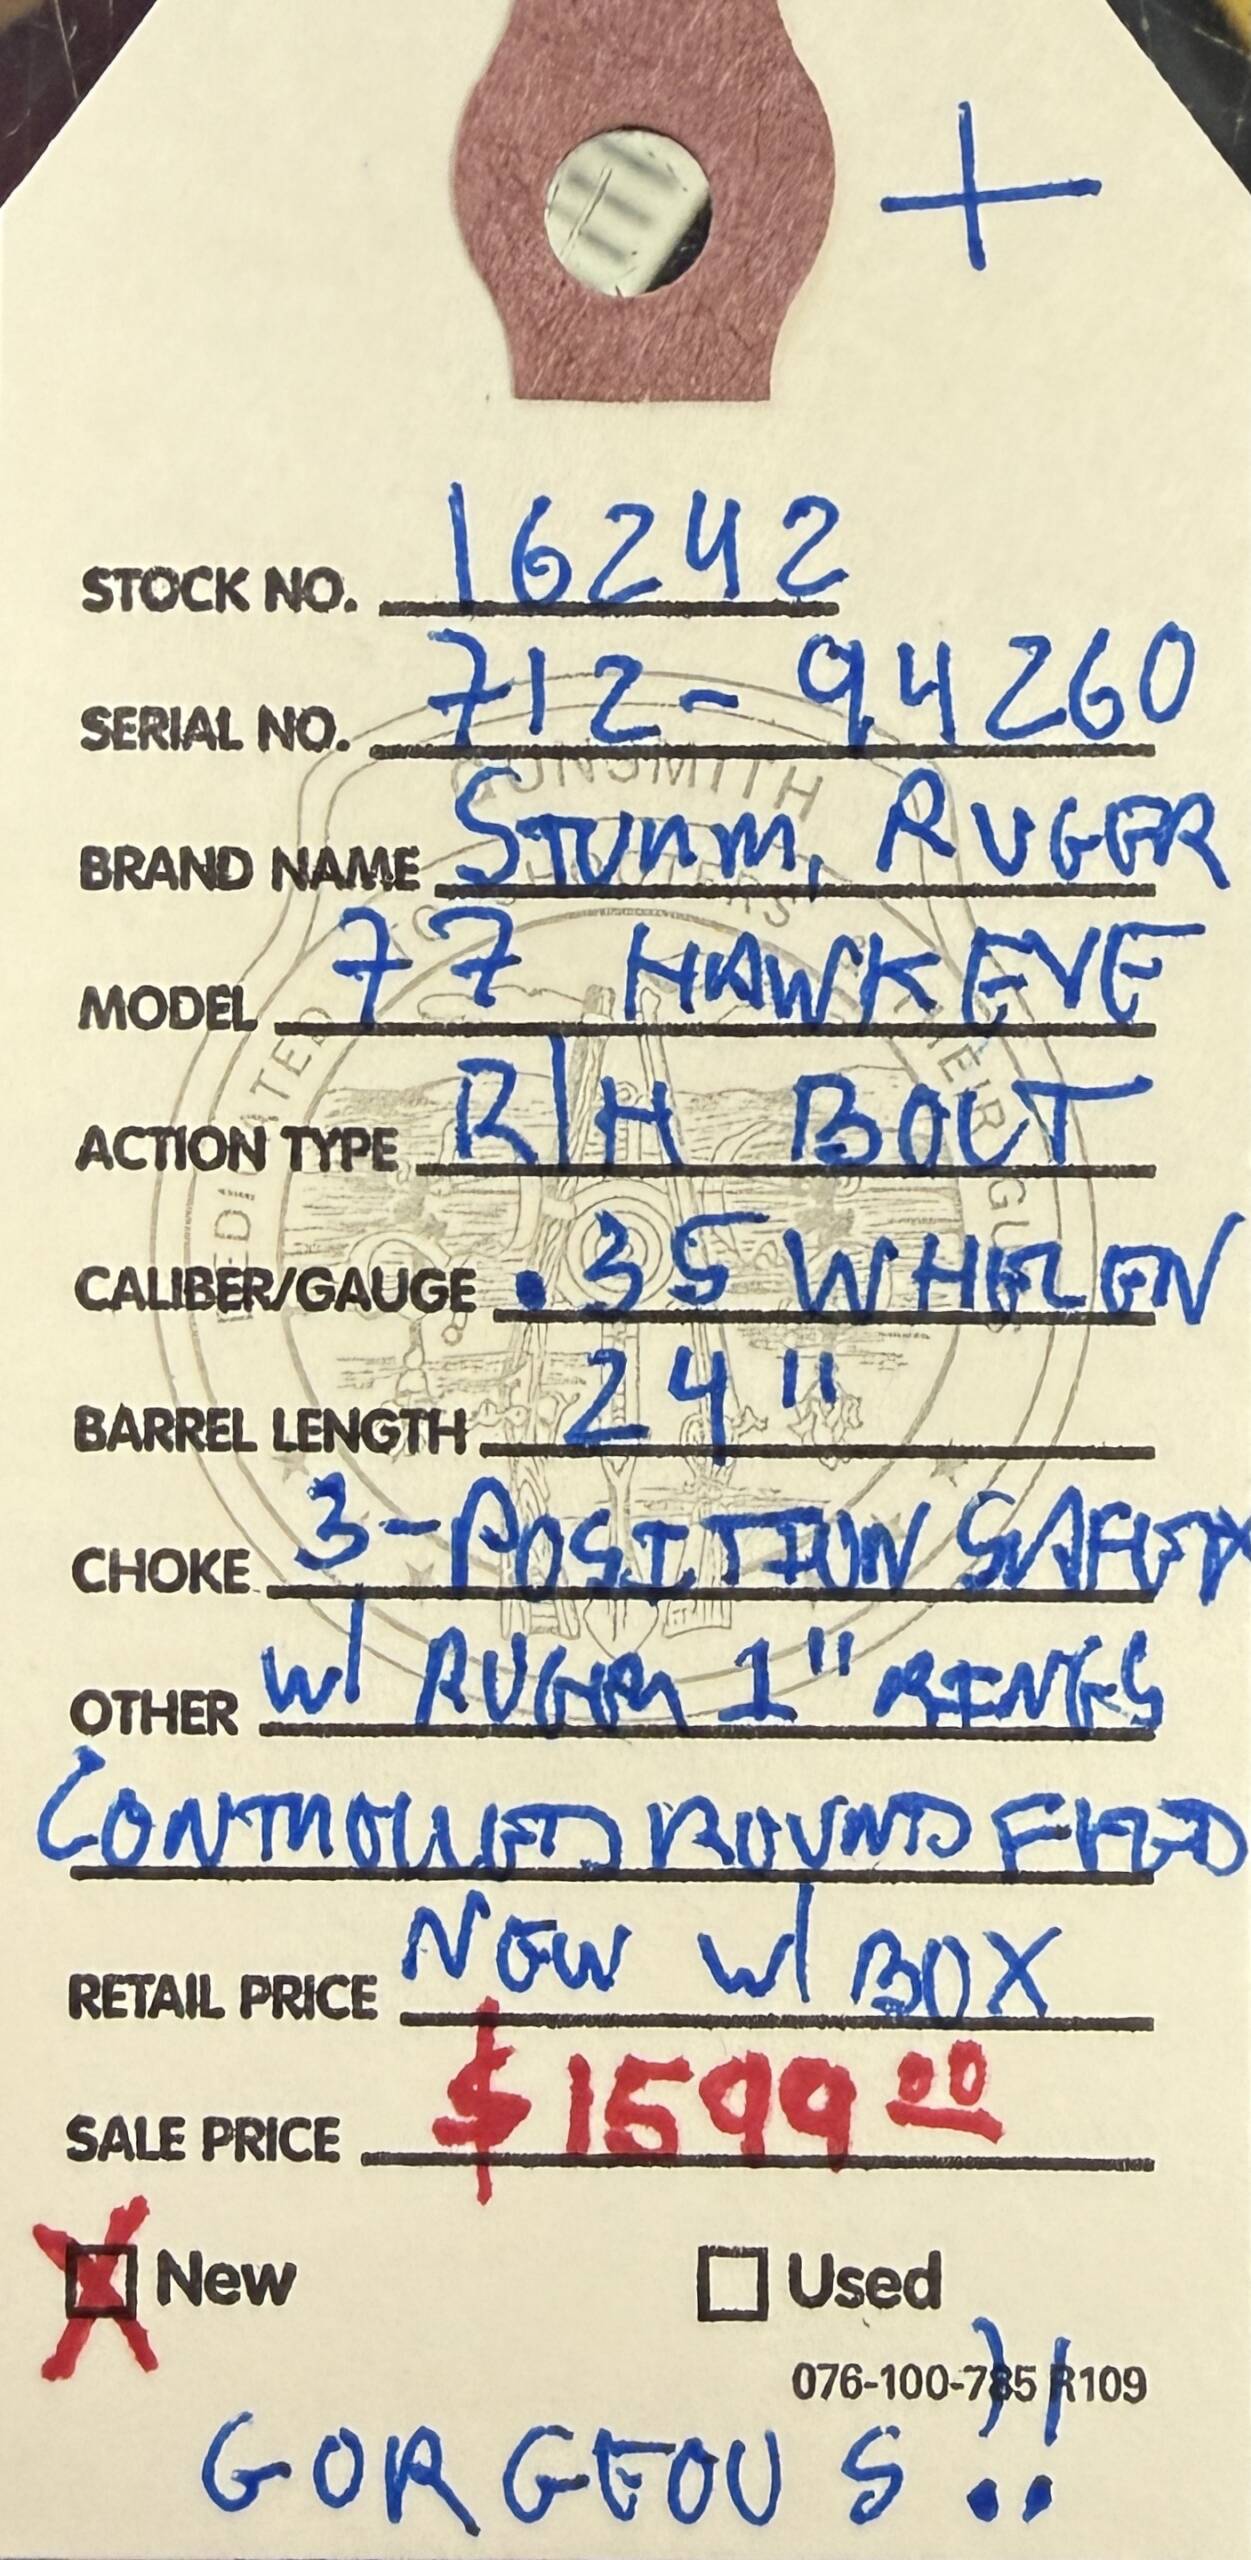 +
STOCK NO. 16242
SERIAL NO. 712-94260
BRAND NAME STURM, RUGER
MODEL 77 HAWKEYE
ACTION TYPE R/H BOLT
CALIBER/GAUGE .35 WHELEN
BARREL LENGTH 24"
CHOKE 3-POSITION SAFETY
OTHER w/ RUGER 1" RINGS
CONTROLLED ROUND FEED
RETAIL PRICE NEW w/ BOX
SALE PRICE $1599 00
X New Used
076-100-785 R109
GORGEOUS!!
GUNSMITH